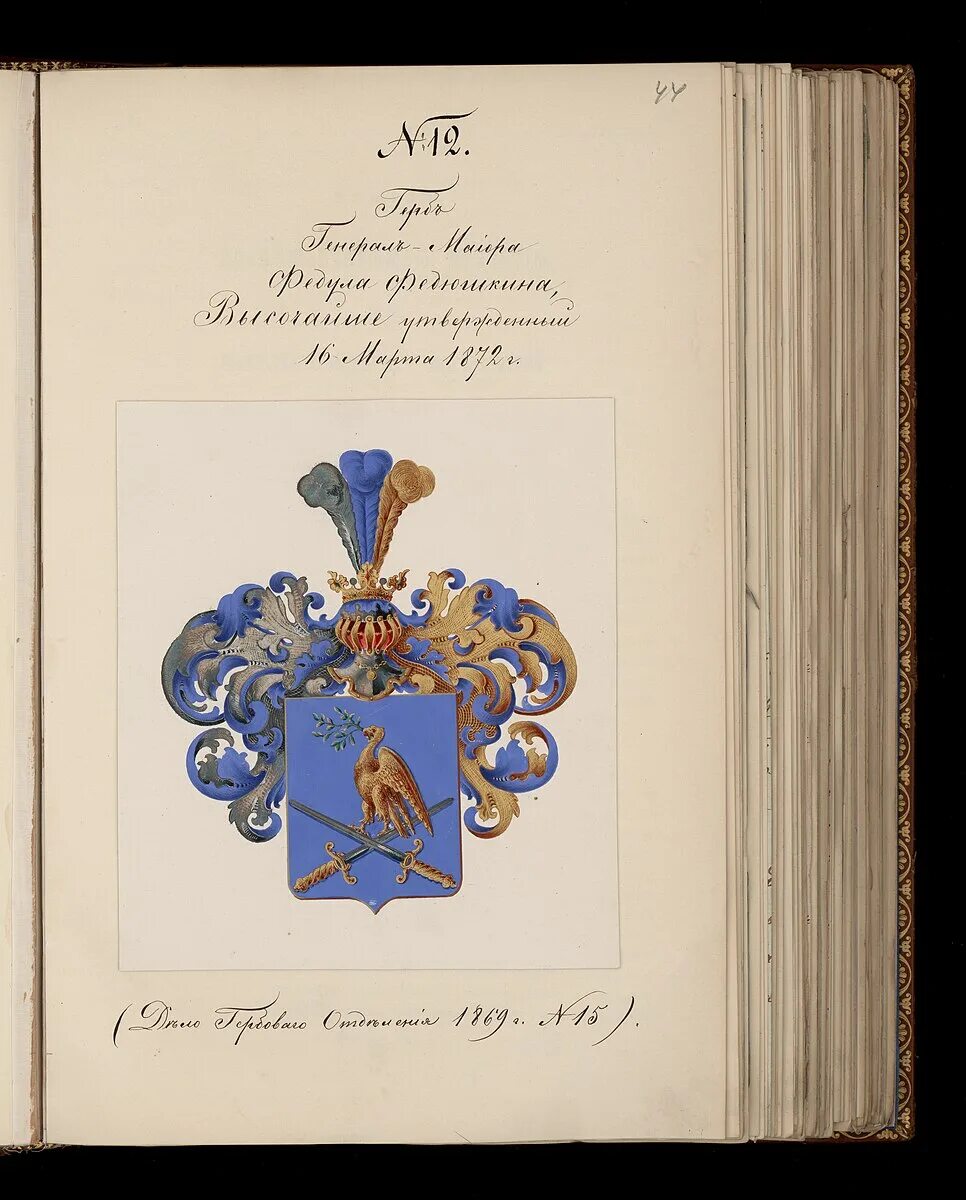 44
№ 12.
Гербъ
Генералъ-Маіора
Федула Федюшкина,
Высочайше утвержденный
16 Марта 1872 г.
(Дѣло Гербоваго Отдѣленія 1869 г. № 15).